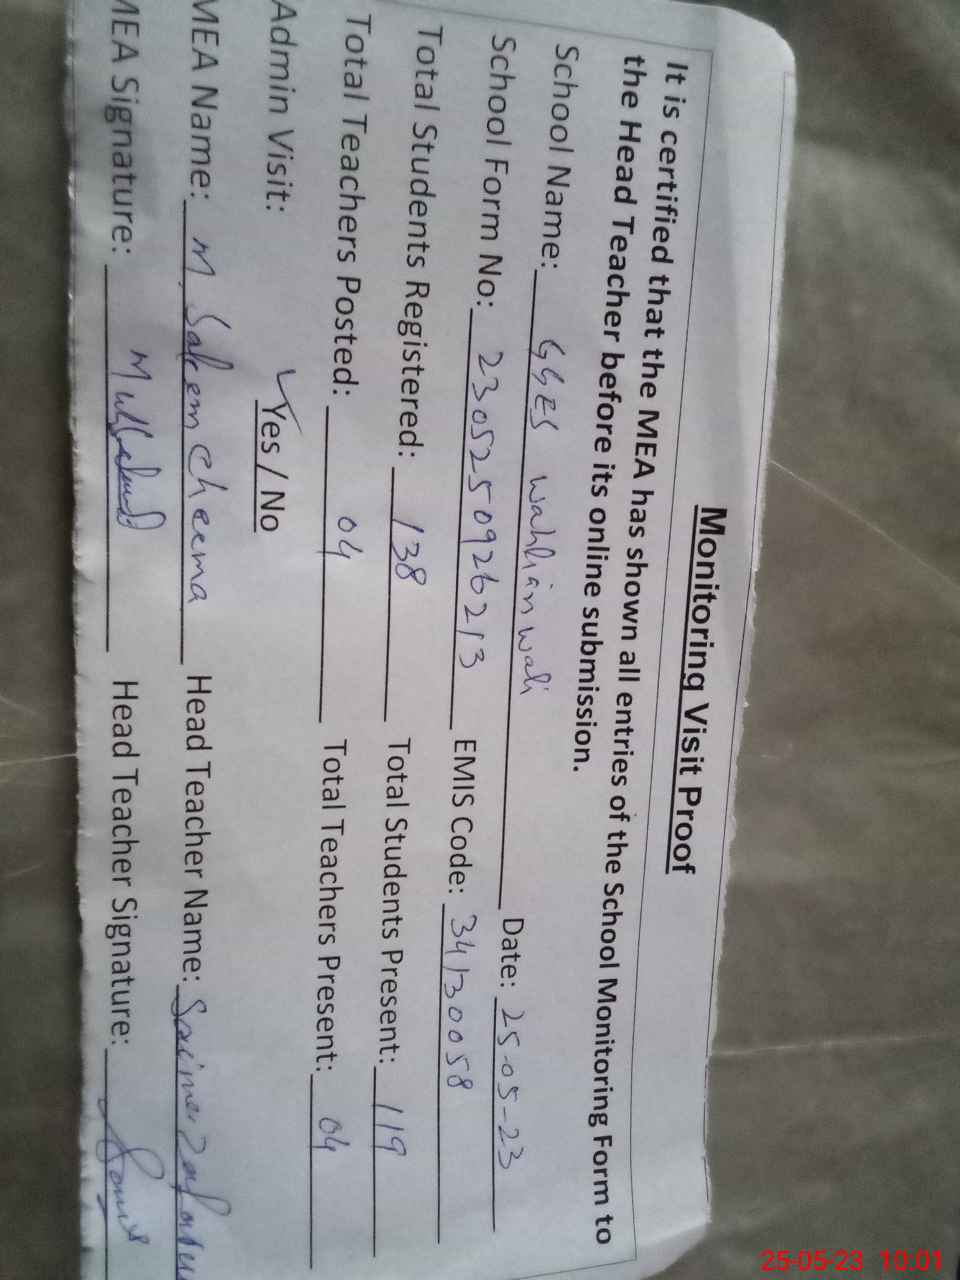 Monitoring Visit Proof
It is certified that the MEA has shown all entries of the School Monitoring Form to
the Head Teacher before its online submission.
School Name: GGES Wahlianwali Date: 25-05-23
School Form No: 2305250926213 EMIS Code: 34130058
Total Students Registered: 138 Total Students Present: 119
Total Teachers Posted: 04 Total Teachers Present: 04
Admin Visit: ✓Yes / No
MEA Name: M. Saleem Cheema Head Teacher Name: Saima
MEA Signature: Head Teacher Signature:
25-05-23 10:01